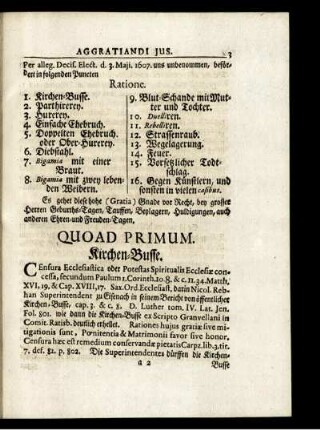 AGGRATIANDI JUS. 3
Per alleg. Decis. Elect. d. 3. Maji. 1607. uns unbenommen, beför-
dert in folgenden Puncten
Ratione.
1. Kirchen-Busse.
2. Parthirerey.
3. Hurerey.
4. Einfache Ehebruch.
5. Doppelten Ehebruch
oder Ober-Hurerey.
6. Diebstahl.
7. Bigamia mit einer
Braut.
8. Bigamia mit zwey leben-
den Weibern.
9. Blut-Schande mit Mut-
ter und Tochter.
10. Duelliren.
11. Rebelliren.
12. Strassenraub.
13. Wegelagerung.
14. Feuer.
15. Vorsetzlicher Todt-
schlag.
16. Gegen Künstlern, und
sonsten in vielen casibus.
Es gehet diese hohe (Gratia) Gnade vor Recht, bey grosser
Herren Geburths-Tagen, Tauffen, Beylagern, Huldigungen, auch
anderen Ehren-und Freuden-Tagen,
QUOAD PRIMUM.
Kirchen-Busse.
CEnsura Ecclesiastica oder Potestas Spiritualis Ecclesiæ con-
cessa, secundum Paulum 2. Corinth. 10. 8. & c. 11. 34. Matth.
XVI, 19, & Cap. XVIII, 17. Sax. Ord. Ecclesiast. datin Nicol. Reb-
han Superintendent zu Eisenach in seinem Bericht von öffentlicher
Kirchen-Busse, cap. 3. & c. 8. D. Luther tom. IV. Lat. Jen.
Fol. 801. wie dann die Kirchen-Busse ex Scripto Granvellani in
Comit. Ratisb. deutlich erhellet. Rationes hujus gratiæ sive mi-
tigationis sunt, Pœnitentia & Matrimonii favor sive honor.
Censura hæc est remedium conservandæ pietatis Carpz. lib. 3. tit.
7. def. 81. p. 802. Die Superintendentes dürffen die Kirchen-
a 2 Busse